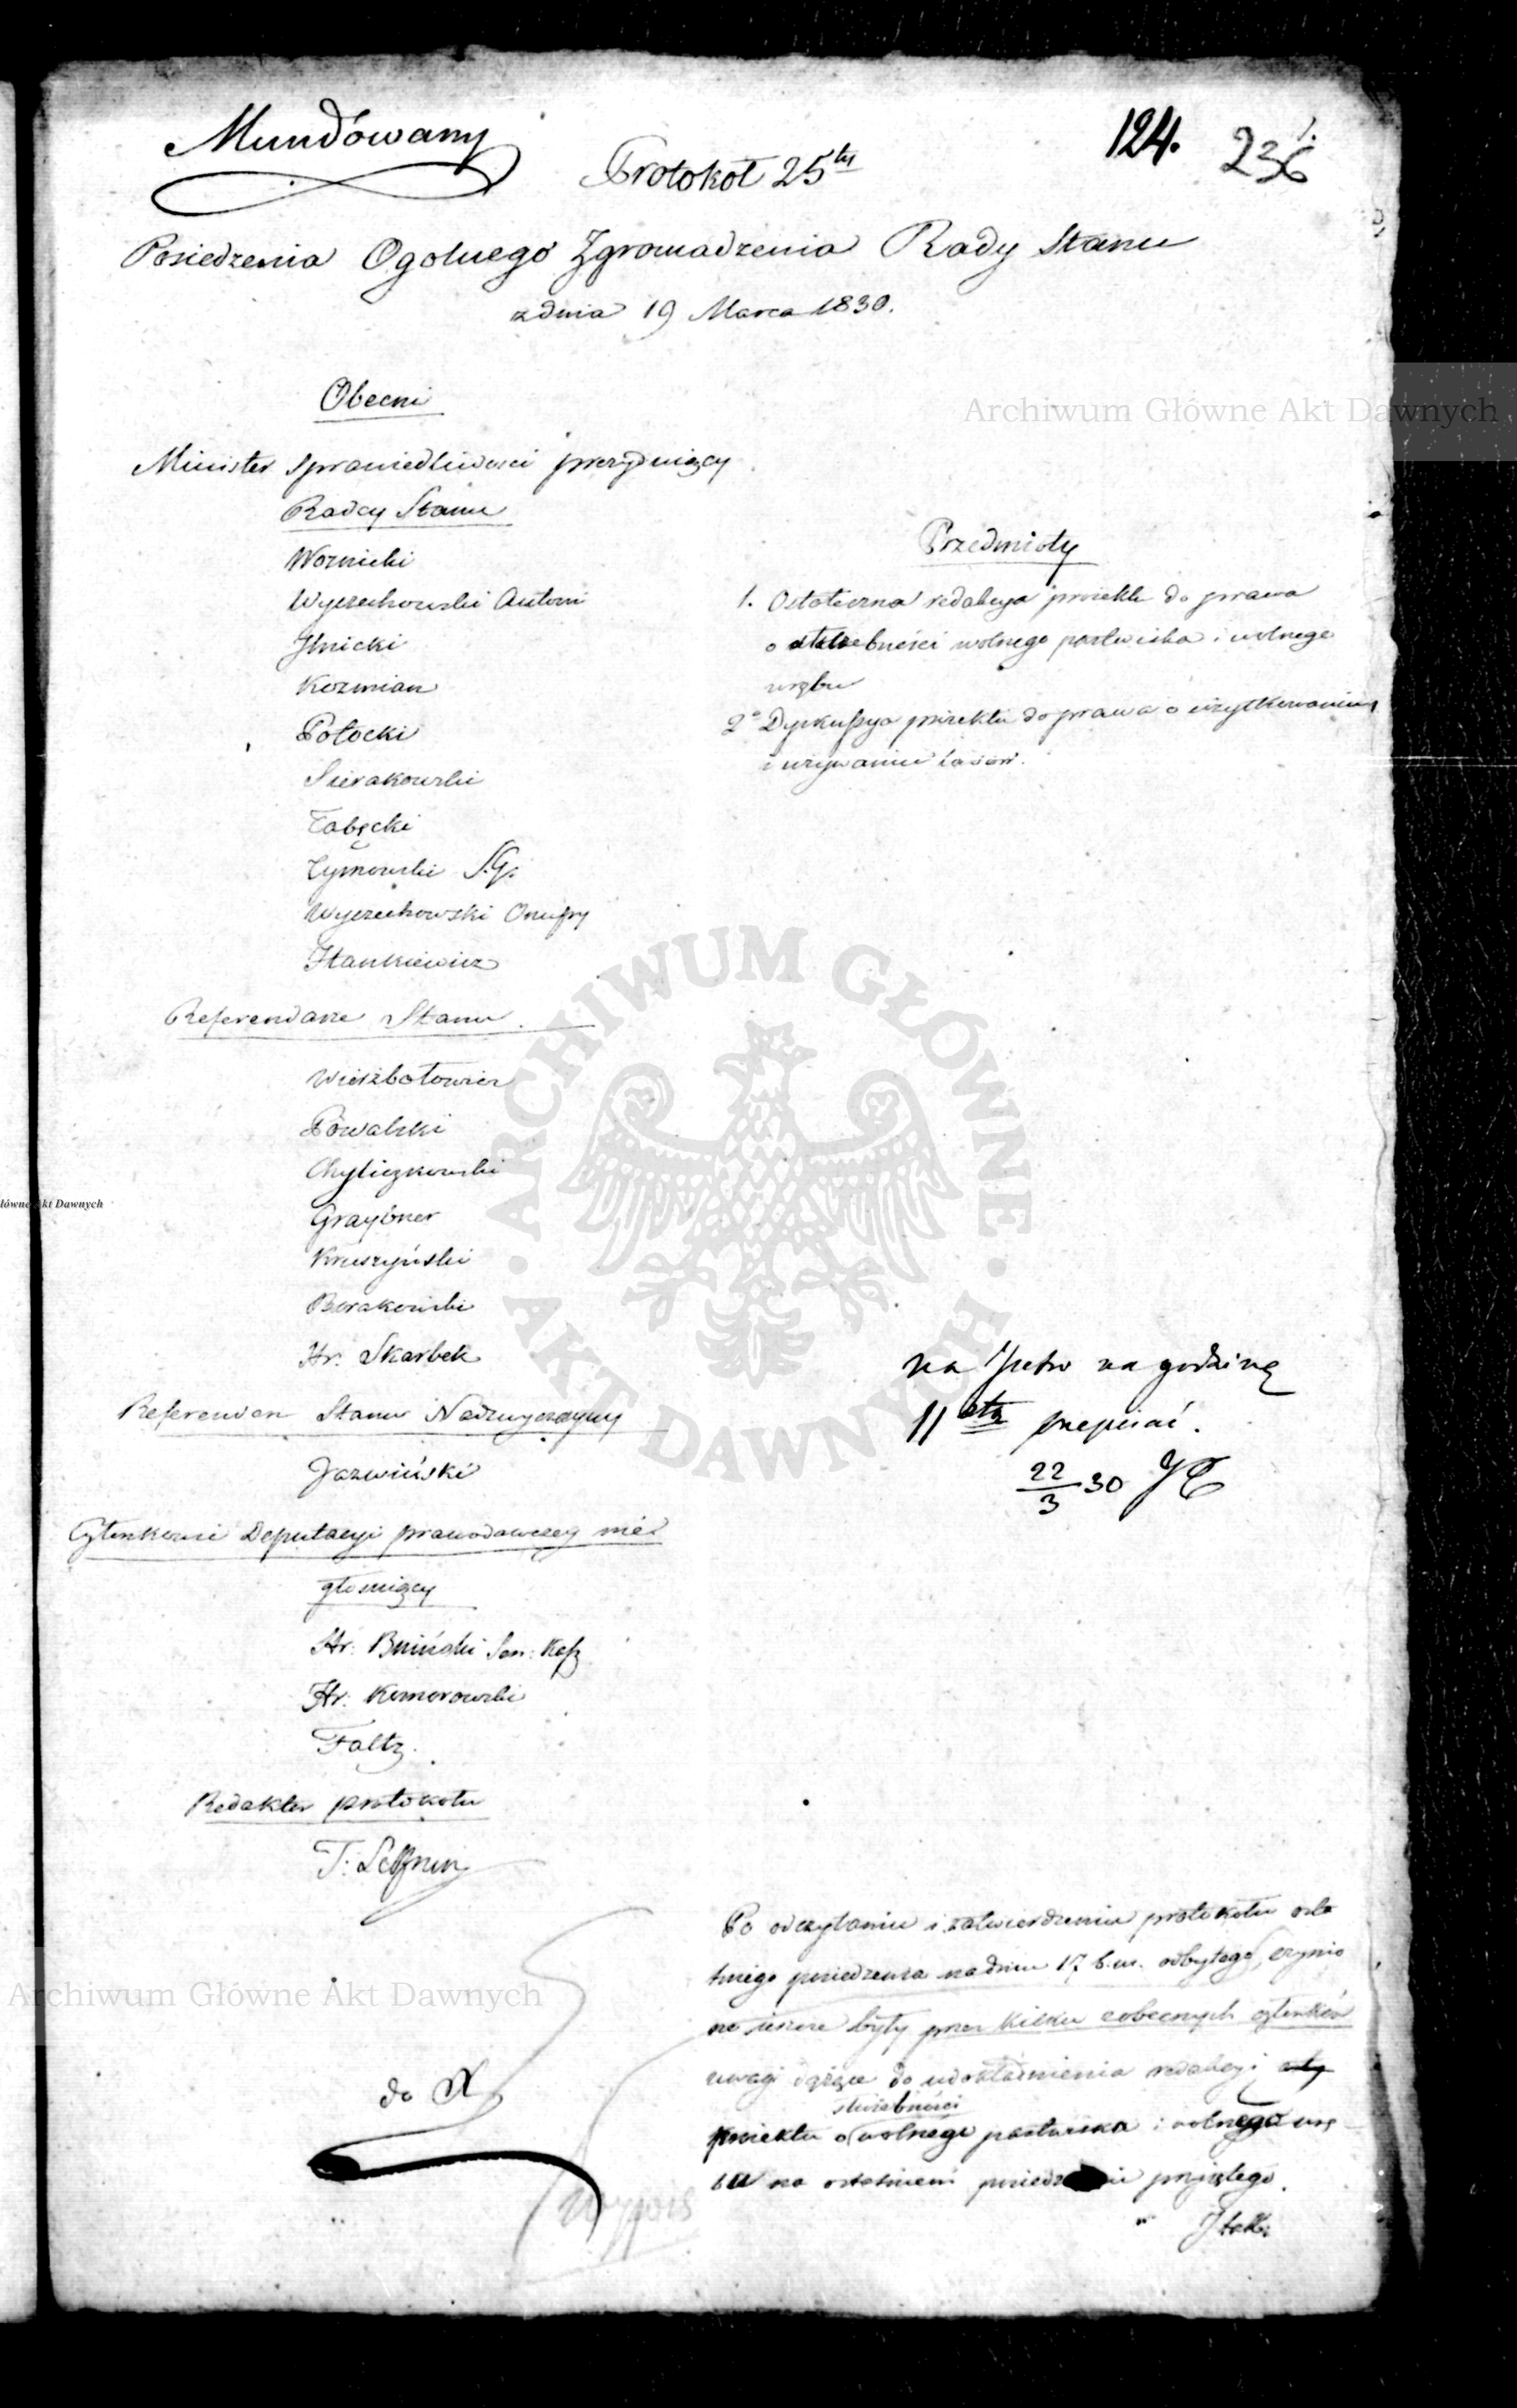 Mundowany
124.
236
1.
Protokół 25ty
Posiedzenia Ogolnego Zgromadzenia Rady Stanu
z dnia 19 Marca 1830.
Obecni
Minister sprawiedliwosci prezyduiący
Radcy Stanu
Woznicki
Wyczechowski Antoni
Ilnicki
Kozmian
Potocki
Sierakowski
Łabęcki
Tymowski S.G.
Wyczechowski Onufry
Stankiewicz
Referendarze Stanu
Wieszbołowicz
Powalski
Chyliczkowski
Graybner
Kruszyński
Borakowski
Hr. Skarbek
Referendarz Stanu Nadzwyczayny
Jazwiński
Członkowie Deputacyi prawodawczey nie
głosuiący
Hr: Bniński Sen: Kasz
Hr: Komorowski
Faltz.
Redaktor protokołu
Przedmioty
1. Ostateczna redakcya proiektu do prawa
o służebności wolnego pastwiska i wolnego
wrębu
2° Dyskussya proiektu do prawa o użytkowaniu
i używaniu lasów.
na jutro na godzinę
11stą przepisać.
22/3 30
Po odczytaniu i zatwierdzeniu protokołu osta
tniego posiedzenia na dniu 17 b.m. odbytego, czynio
ne ieszcze były przez kilku obecnych członków
uwagi dążące do udokładnienia redakcyi
służebności
proiektu o wolnego pastwiska i wolnego wrę
bu na ostatniem posiedzeniu przyiętego.
do
Wypis
Archiwum Główne Akt Dawnych
łówne Akt Dawnych
ARCHIWUM GŁÓWNE · AKT DAWNYCH ·
Archiwum Główne Akt Dawnych